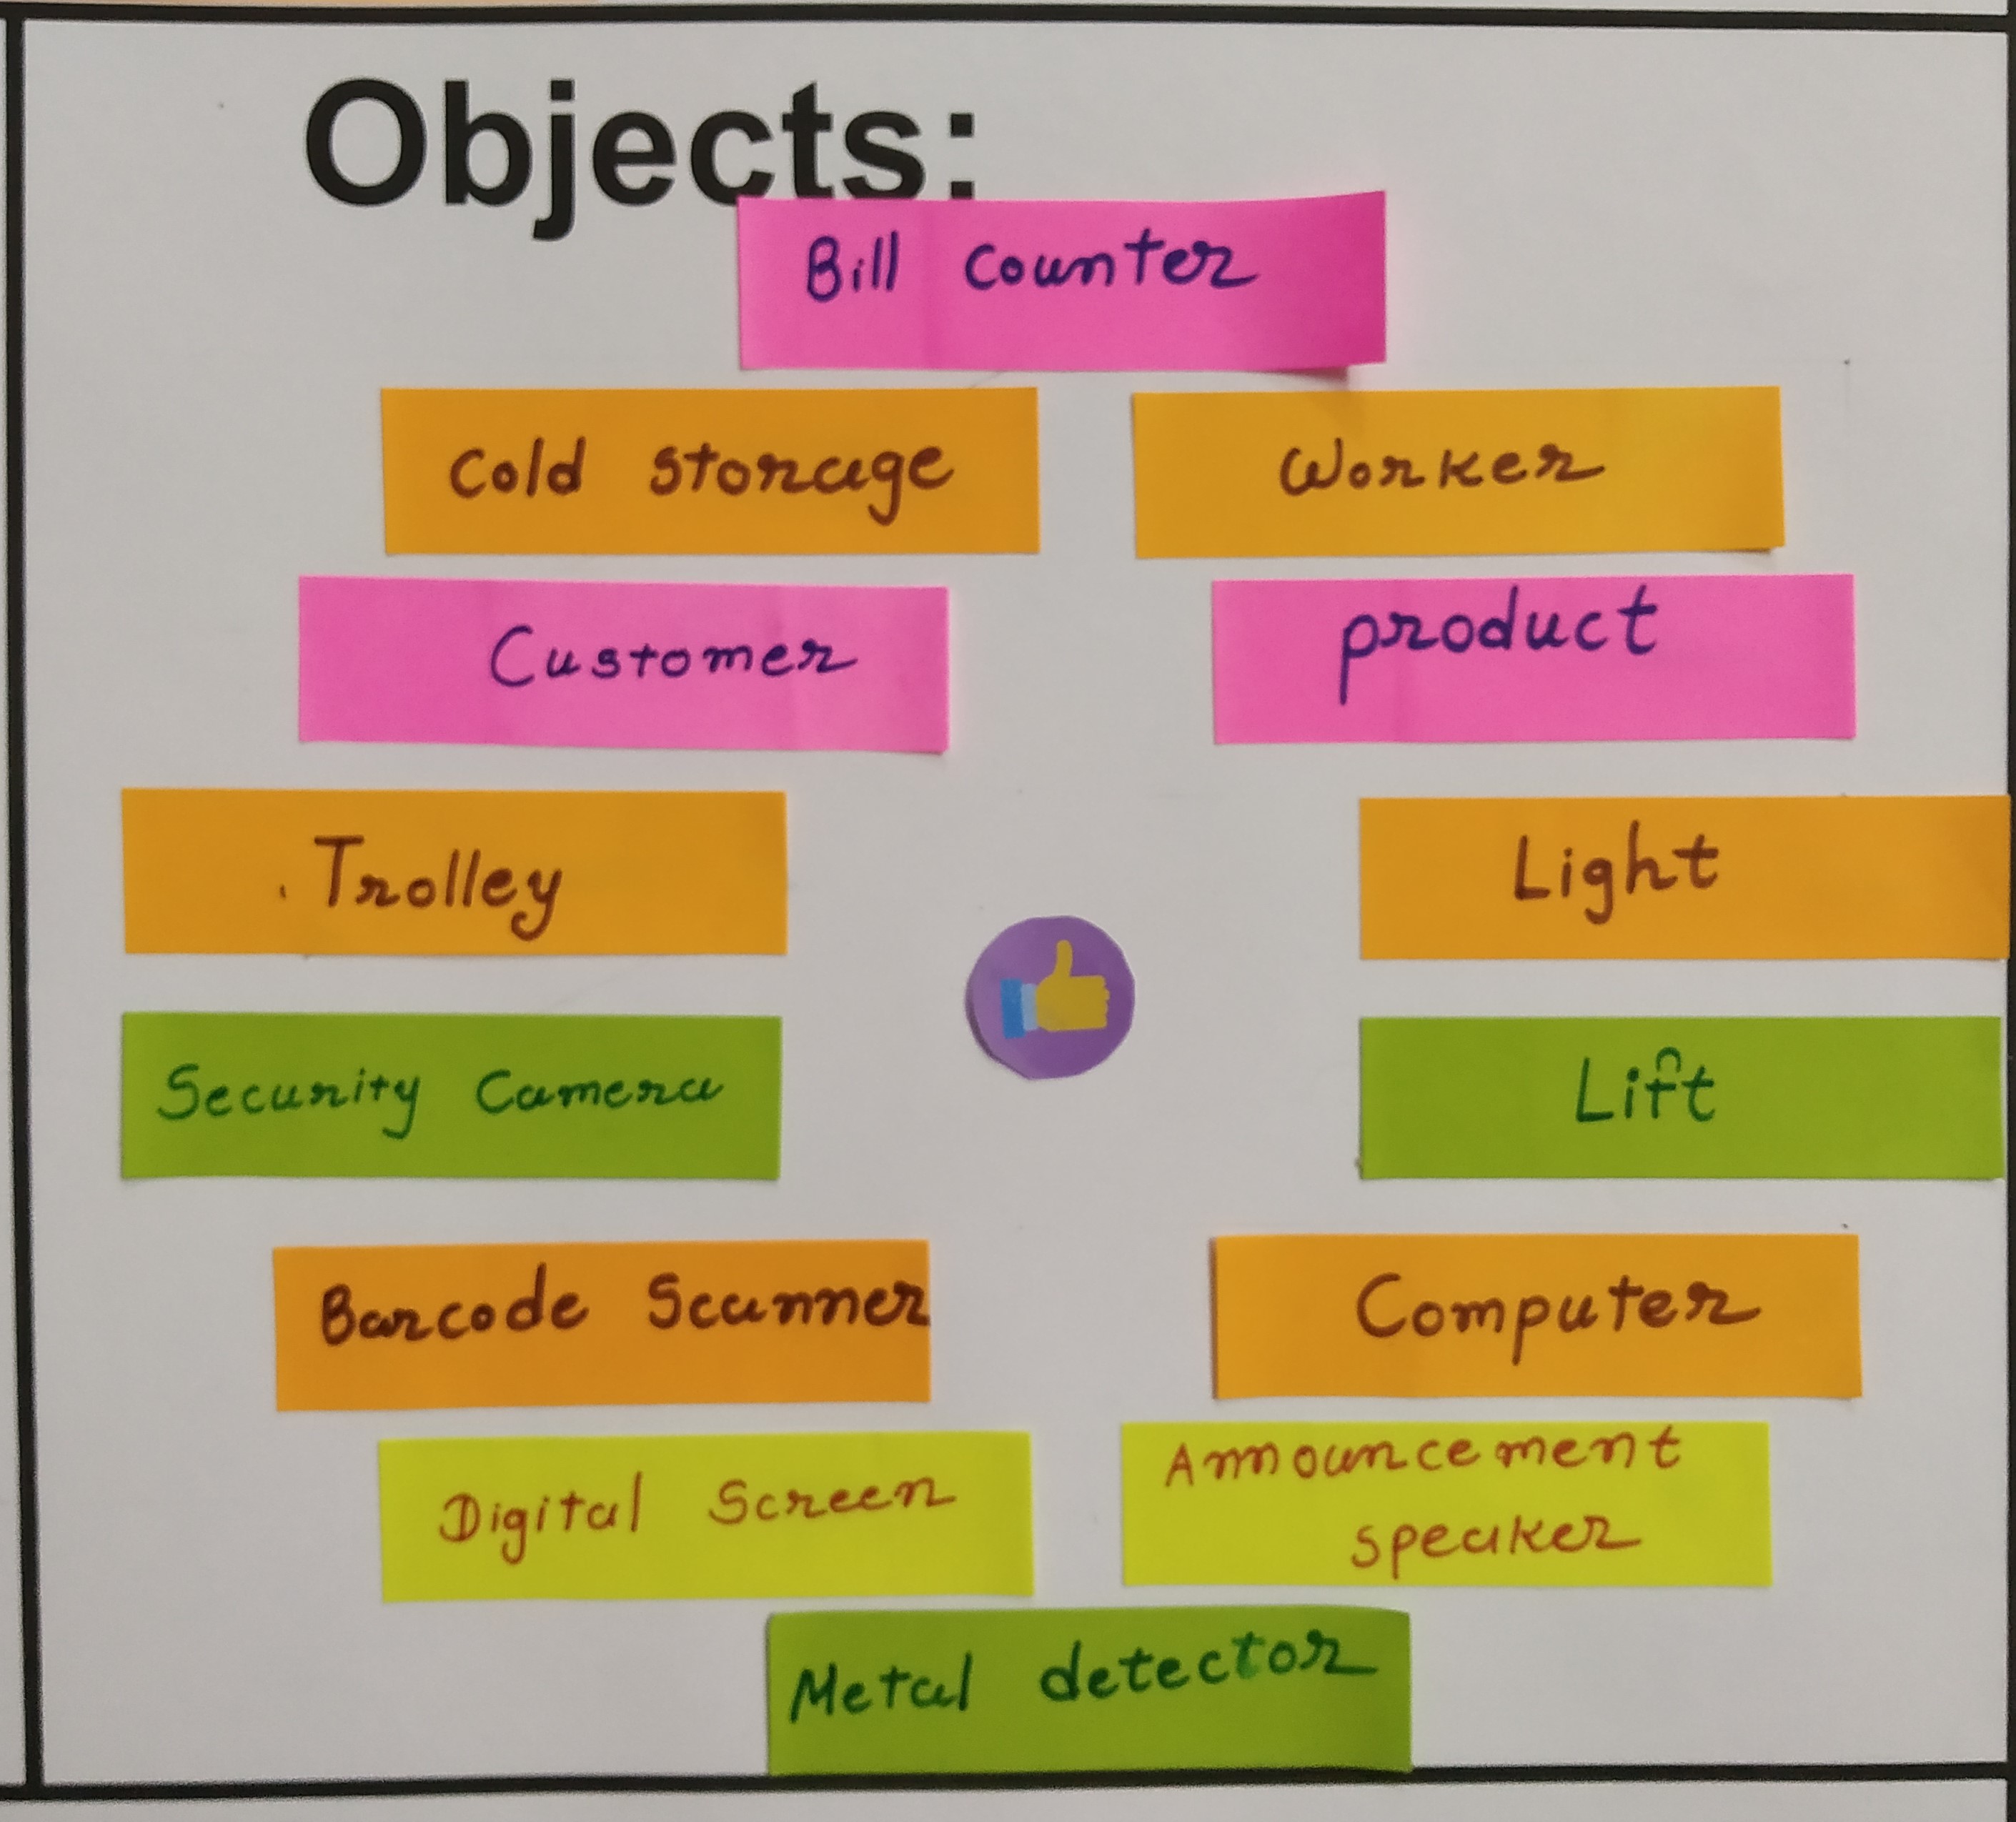 Objects:
Bill Counter
Cold storage
Worker
Customer
product
Trolley
Light
Security Camera
Lift
Barcode Scanner
Computer
Digital Screen
Announcement
speaker
Metal detector